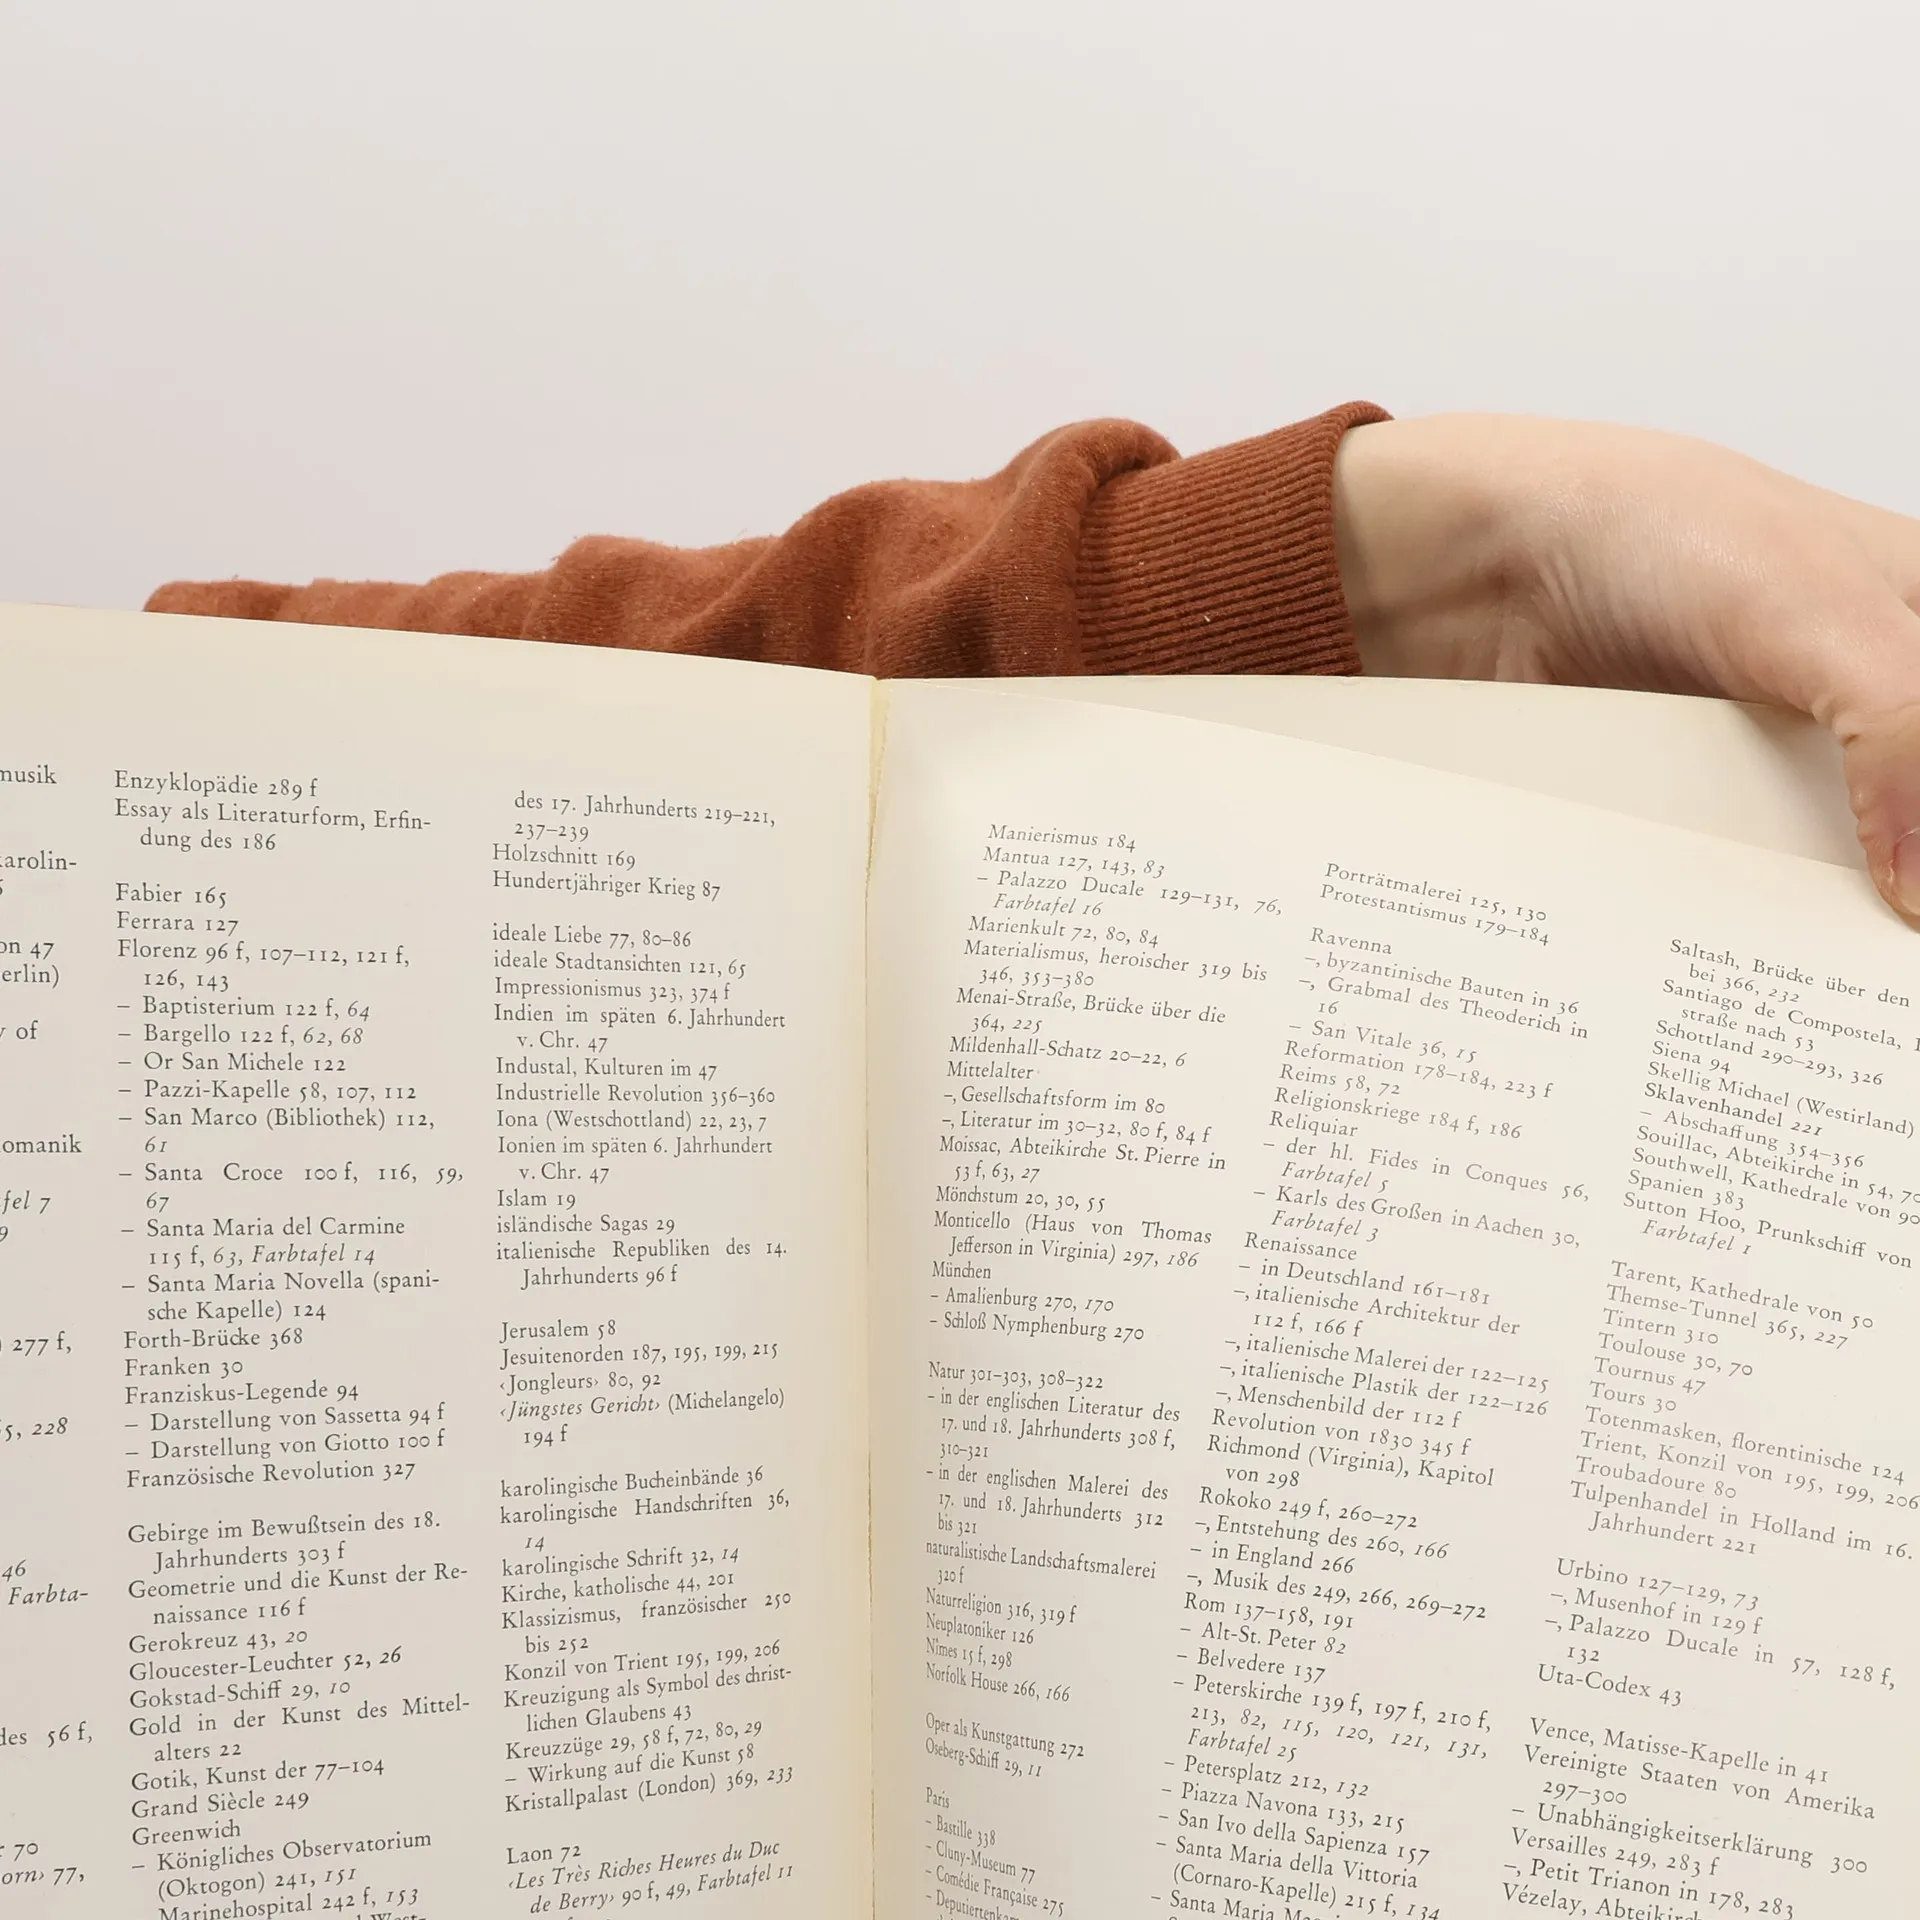 musik
47
erlin)
of
7
277 f,
228
46
Farbta-
des 56 f,
70
77,
Enzyklopädie 289 f
Essay als Literaturform, Erfin-
dung des 186
Fabier 165
Ferrara 127
Florenz 96 f, 107–112, 121 f,
126, 143
– Baptisterium 122 f, 64
– Bargello 122 f, 62, 68
– Or San Michele 122
– Pazzi-Kapelle 58, 107, 112
– San Marco (Bibliothek) 112,
61
– Santa Croce 100 f, 116, 59,
67
– Santa Maria del Carmine
115 f, 63, Farbtafel 14
– Santa Maria Novella (spani-
sche Kapelle) 124
Forth-Brücke 368
Franken 30
Franziskus-Legende 94
– Darstellung von Sassetta 94 f
– Darstellung von Giotto 100 f
Französische Revolution 327
Gebirge im Bewußtsein des 18.
Jahrhunderts 303 f
Geometrie und die Kunst der Re-
naissance 116 f
Gerokreuz 43, 20
Gloucester-Leuchter 52, 26
Gokstad-Schiff 29, 10
Gold in der Kunst des Mittel-
alters 22
Gotik, Kunst der 77–104
Grand Siècle 249
Greenwich
– Königliches Observatorium
(Oktogon) 241, 151
Marinehospital 242 f, 153
des 17. Jahrhunderts 219–221,
237–239
Holzschnitt 169
Hundertjähriger Krieg 87
ideale Liebe 77, 80–86
ideale Stadtansichten 121, 65
Impressionismus 323, 374 f
Indien im späten 6. Jahrhundert
v. Chr. 47
Industal, Kulturen im 47
Industrielle Revolution 356–360
Iona (Westschottland) 22, 23, 7
Ionien im späten 6. Jahrhundert
v. Chr. 47
Islam 19
isländische Sagas 29
italienische Republiken des 14.
Jahrhunderts 96 f
Jerusalem 58
Jesuitenorden 187, 195, 199, 215
‹Jongleurs› 80, 92
‹Jüngstes Gericht› (Michelangelo)
194 f
karolingische Bucheinbände 36
karolingische Handschriften 36,
14
karolingische Schrift 32, 14
Kirche, katholische 44, 201
Klassizismus, französischer 250
bis 252
Konzil von Trient 195, 199, 206
Kreuzigung als Symbol des christ-
lichen Glaubens 43
Kreuzzüge 29, 58 f, 72, 80, 29
– Wirkung auf die Kunst 58
Kristallpalast (London) 369, 233
Laon 72
‹Les Très Riches Heures du Duc
de Berry› 90 f, 49, Farbtafel 11
Manierismus 184
Mantua 127, 143, 83
– Palazzo Ducale 129–131, 76,
Farbtafel 16
Marienkult 72, 80, 84
Materialismus, heroischer 319 bis
346, 353–380
Menai-Straße, Brücke über die
364, 225
Mildenhall-Schatz 20–22, 6
Mittelalter
–, Gesellschaftsform im 80
–, Literatur im 30–32, 80 f, 84 f
Moissac, Abteikirche St. Pierre in
53 f, 63, 27
Mönchstum 20, 30, 55
Monticello (Haus von Thomas
Jefferson in Virginia) 297, 186
München
– Amalienburg 270, 170
– Schloß Nymphenburg 270
Natur 301–303, 308–322
– in der englischen Literatur des
17. und 18. Jahrhunderts 308 f,
310–321
– in der englischen Malerei des
17. und 18. Jahrhunderts 312
bis 321
naturalistische Landschaftsmalerei
320 f
Naturreligion 316, 319 f
Neuplatoniker 126
Nîmes 15 f, 298
Norfolk House 266, 166
Oper als Kunstgattung 272
Oseberg-Schiff 29, 11
Paris
– Bastille 338
– Cluny-Museum 77
– Comédie Française 275
Porträtmalerei 125, 130
Protestantismus 179–184
Ravenna
–, byzantinische Bauten in 36
–, Grabmal des Theoderich in
16
– San Vitale 36, 15
Reformation 178–184, 223 f
Reims 58, 72
Religionskriege 184 f, 186
Reliquiar
– der hl. Fides in Conques 56,
Farbtafel 5
– Karls des Großen in Aachen 30,
Farbtafel 3
Renaissance
– in Deutschland 161–181
–, italienische Architektur der
112 f, 166 f
–, italienische Malerei der 122–125
–, italienische Plastik der 122–126
–, Menschenbild der 112 f
Revolution von 1830 345 f
Richmond (Virginia), Kapitol
von 298
Rokoko 249 f, 260–272
–, Entstehung des 260, 166
– in England 266
–, Musik des 249, 266, 269–272
Rom 137–158, 191
– Alt-St. Peter 82
– Belvedere 137
– Peterskirche 139 f, 197 f, 210 f,
213, 82, 115, 120, 121, 131,
Farbtafel 25
– Petersplatz 212, 132
– Piazza Navona 133, 215
– San Ivo della Sapienza 157
– Santa Maria della Vittoria
(Cornaro-Kapelle) 215 f, 134
– Santa Maria
Saltash, Brücke über den
bei 366, 232
Santiago de Compostela,
straße nach 53
Schottland 290–293, 326
Siena 94
Skellig Michael (Westirland)
Sklavenhandel 221
– Abschaffung 354–356
Souillac, Abteikirche in 54,
Southwell, Kathedrale von 90
Spanien 383
Sutton Hoo, Prunkschiff von
Farbtafel 1
Tarent, Kathedrale von 50
Themse-Tunnel 365, 227
Tintern 310
Toulouse 30, 70
Tournus 47
Tours 30
Totenmasken, florentinische 124
Trient, Konzil von 195, 199, 206
Troubadoure 80
Tulpenhandel in Holland im 16.
Jahrhundert 221
Urbino 127–129, 73
–, Musenhof in 129 f
–, Palazzo Ducale in 57, 128 f,
132
Uta-Codex 43
Vence, Matisse-Kapelle in 41
Vereinigte Staaten von Amerika
297–300
– Unabhängigkeitserklärung 300
Versailles 249, 283 f
–, Petit Trianon in 178, 283
Vézelay,